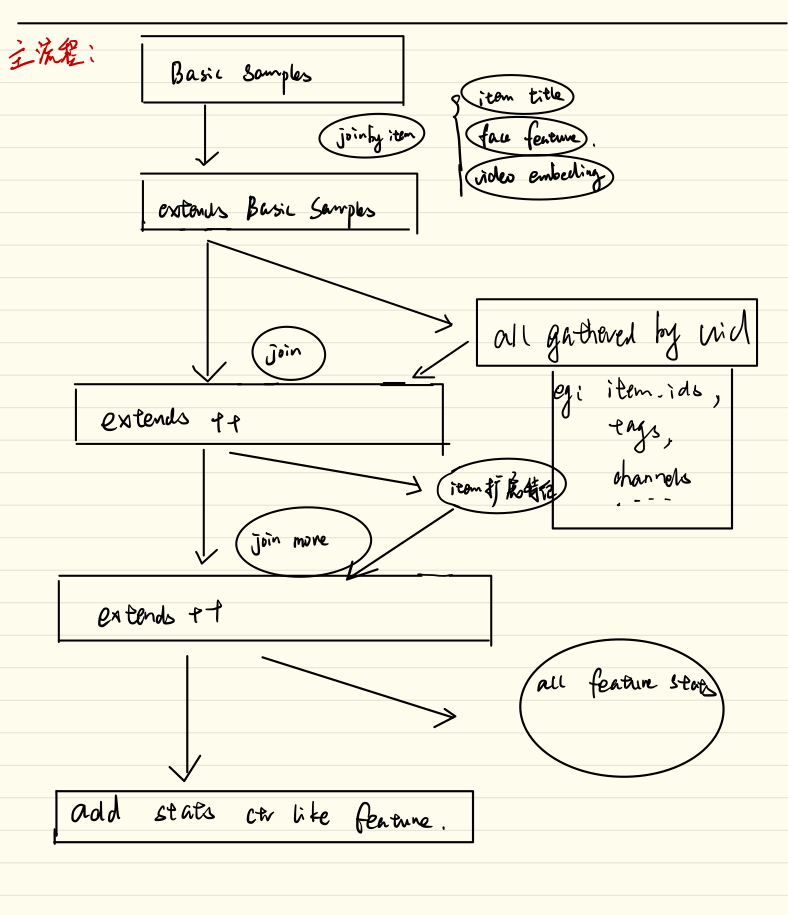 主流程:
Basic Samples
join by item
item title
face feature.
video embeding
extends Basic Samples
all gathered by uid
join
eg: item_ids,
tags,
channels
.----
extends ++
item扩展特征
join more
extends ++
all feature stats
add stats ctr like feature.